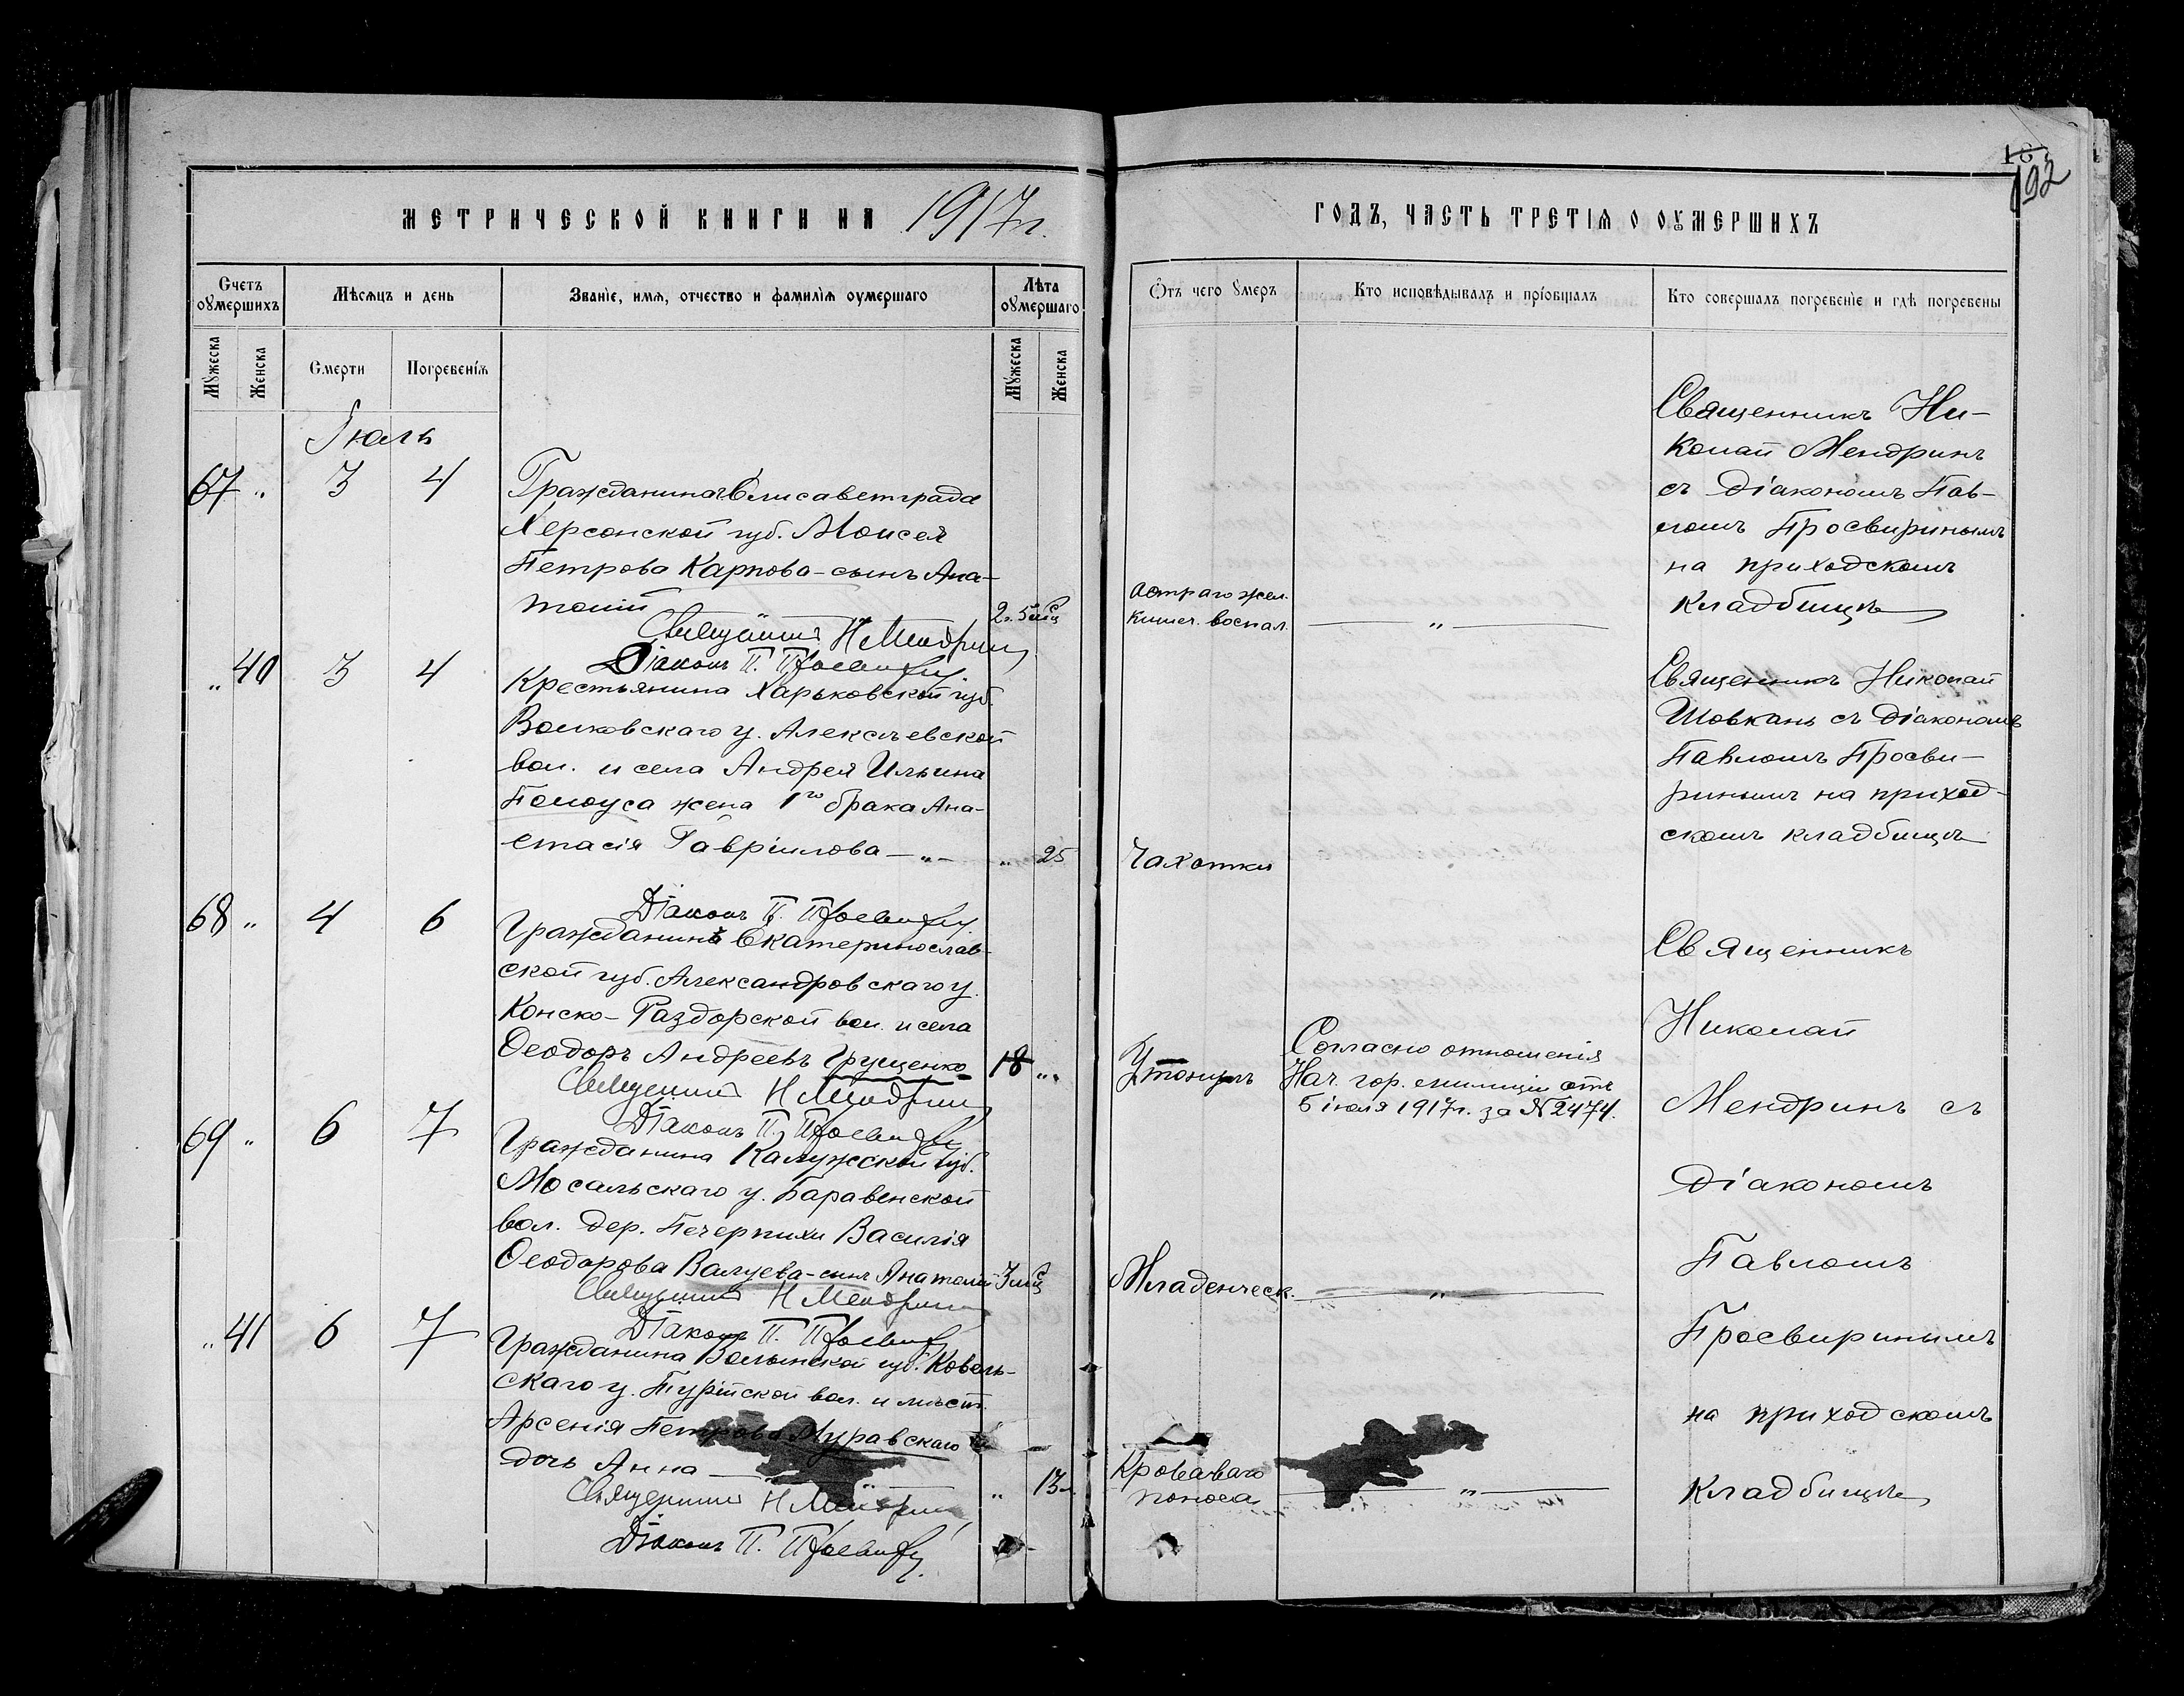 192
МЕТРИЧЕСКОЙ КНИГИ НА 1917 г.
ГОДЪ, ЧАСТЬ ТРЕТІѦ О ОУМЕРШИХЪ
Счетъ оумершихъ
Мѣсѧцъ и день
Званіе, имѧ, отчество и фамиліѧ оумершаго
Лѣта оумершаго
Отъ чего умеръ
Кто исповѣдывалъ и пріобщалъ
Кто совершалъ погребеніе и гдѣ погребены
Мужеска
Женска
Смерти
Погребеніѧ
Мужеска
Женска
Іюль
67 " 3 4
Гражданина г. Елисаветграда
Херсонской губ. Моисея
Петрова Карпова - сынъ Ана-
толій
2 г. 5 мѣс
Остраго жел.
кишеч. воспал.
— " —
Священникъ Ни-
колай Мендринъ
съ діакономъ Пав-
ломъ Просвиринымъ
на приходскомъ
кладбищѣ
Священникъ Н Мендринъ
Діаконъ П. Просвиринъ
" 40 3 4
Крестьянина Харьковской губ.
Волковскаго у. Алексѣевской
вол. и села Андрея Ильина
Белоуса жена 1го брака Ана-
стасія Гавріилова — " —
" 25
Чахотки
Священникъ Николай
Шовкань съ діакономъ
Павломъ Просви-
ринымъ на приход-
скомъ кладбищѣ
Діаконъ П. Просвиринъ
68 " 4 6
Гражданинъ Екатеринослав-
ской губ. Александровскаго у.
Конско-Раздорской вол. и села
Ѳеодоръ Андреевъ Грущенко
18 "
Утонулъ
Согласно отношенія
Нач. гор. милиціи отъ
5 іюля 1917 г. за № 2474.
Священникъ Н Мендринъ
Діаконъ П. Просвиринъ
69 " 6 7
Гражданина Калужской губ.
Мосальскаго у. Баравенской
вол. дер. Печерпихи Василія
Ѳеодорова Валуева - сынъ Анатолій
3 мѣс
Младенческ.
— " —
Священникъ Н Мендринъ
Діаконъ П. Просвиринъ
" 41 6 7
Гражданина Волынской губ. Ковель-
скаго у. Турійской вол. и мѣст.
Арсенія Петрова Муравскаго
дочь Анна — " —
" 13
Кроваваго
поноса
— " —
Священникъ
Николай
Мендринъ съ
діакономъ
Павломъ
Просвиринымъ
на приходскомъ
кладбищѣ
Священникъ Н Мендринъ
Діаконъ П. Просвиринъ